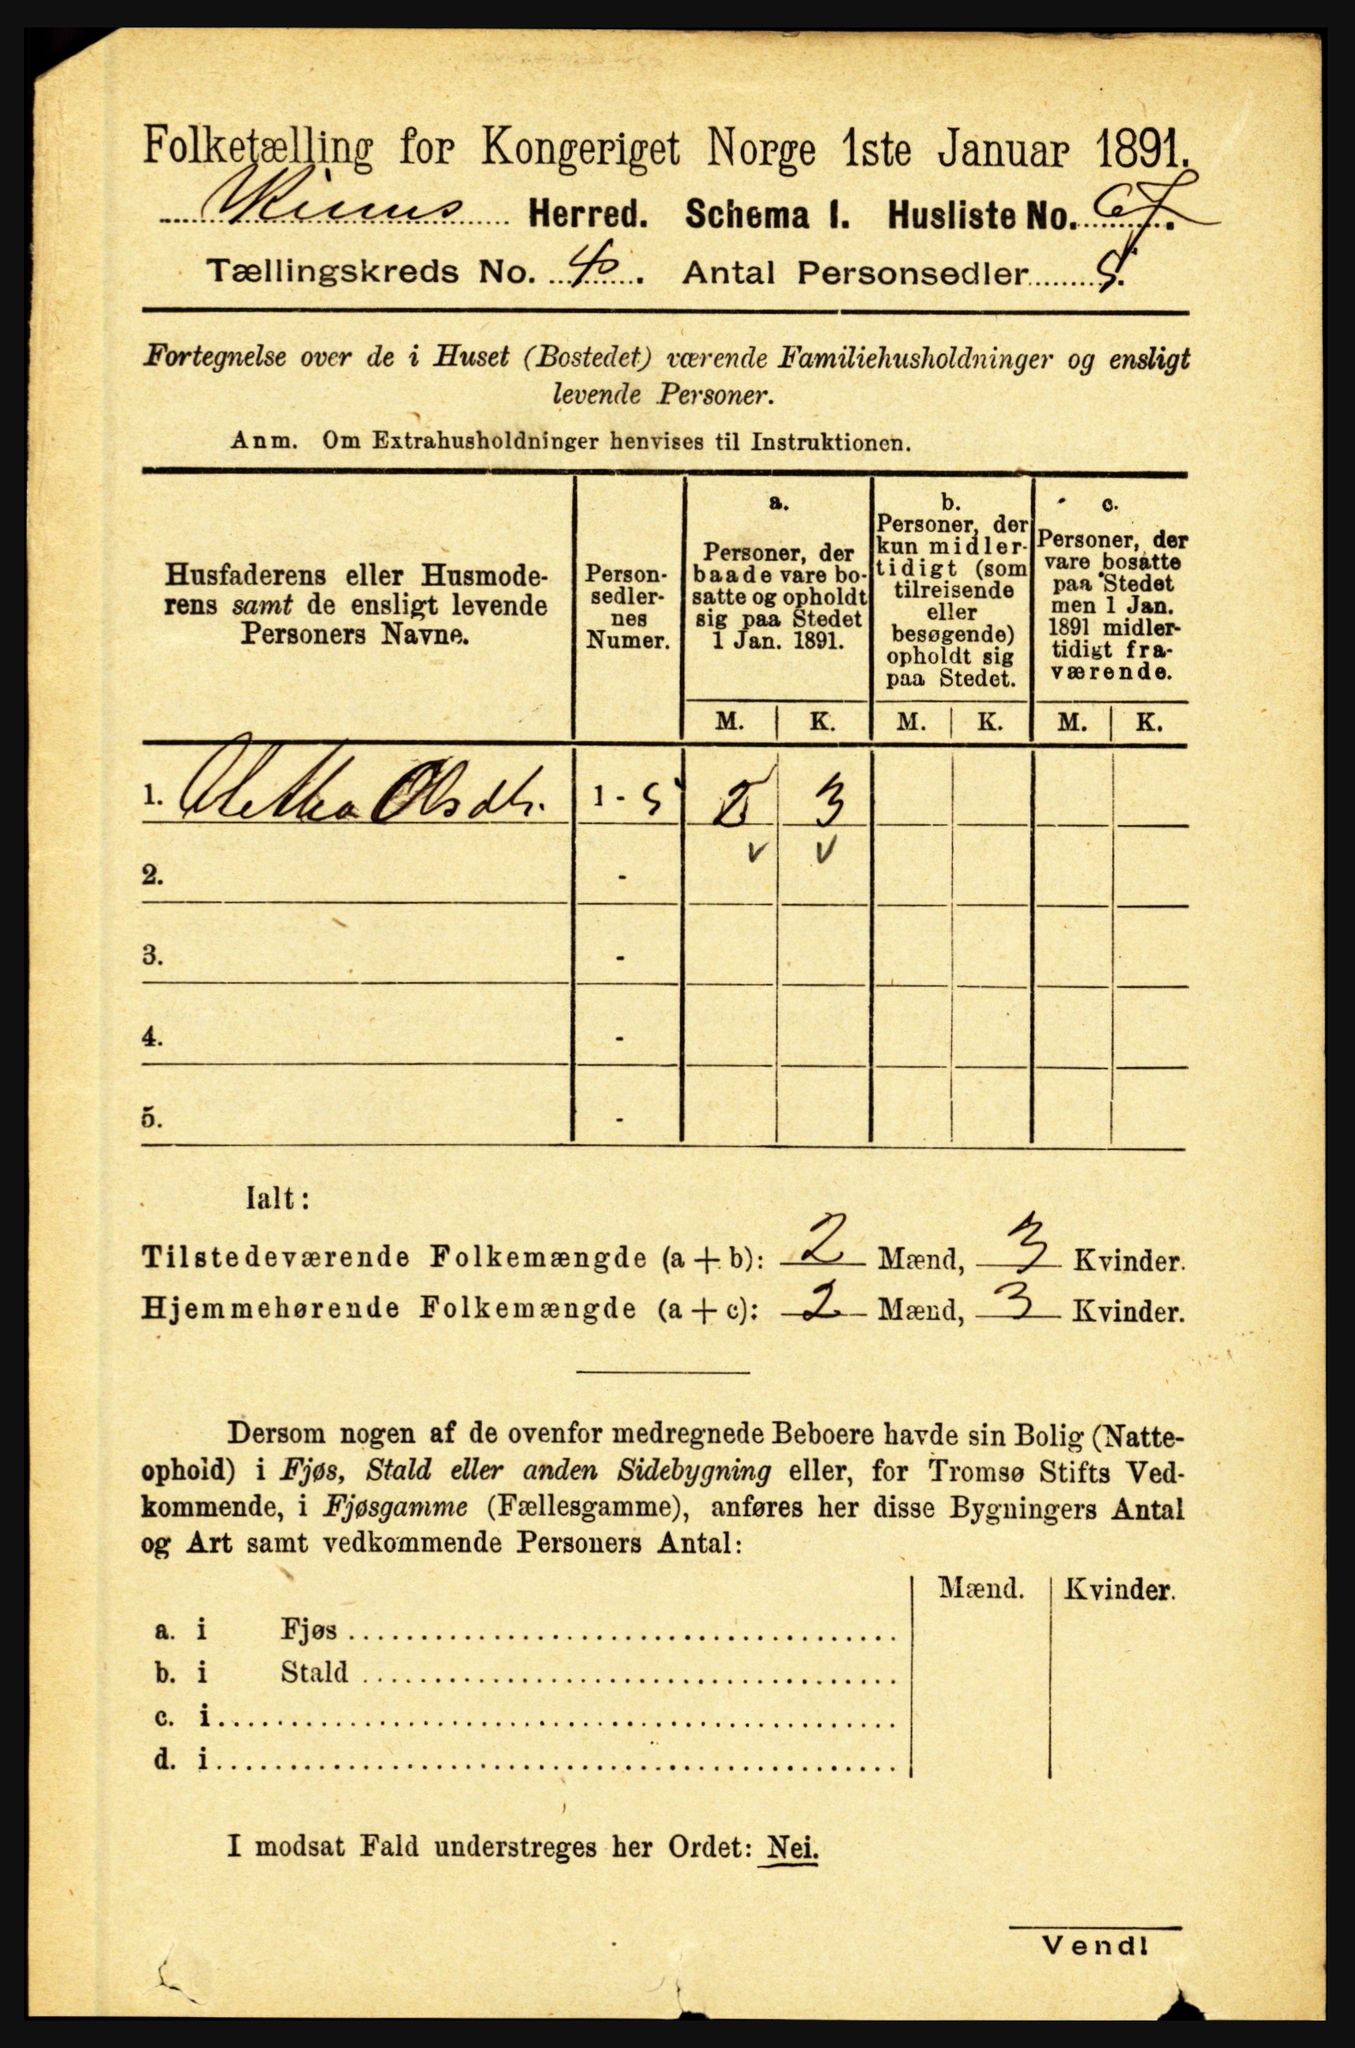 Folketælling for Kongeriget Norge 1ste Januar 1891.
Kinns Herred. Schema I. Husliste No. 67.
Tællingskreds No. 4. Antal Personsedler 5.
Fortegnelse over de i Huset (Bostedet) værende Familiehusholdninger og ensligt
levende Personer.
Anm. Om Extrahusholdninger henvises til Instruktionen.
Husfaderens eller Husmode-
rens samt de ensligt levende
Personers Navne.
Person-
sedler-
nes
Numer.
a.
Personer, der
baade vare bo-
satte og opholdt
sig paa Stedet
1 Jan. 1891.
b.
Personer, der
kun midler-
tidigt (som
tilreisende
eller
besøgende)
opholdt sig
paa Stedet.
c.
Personer, der
vare bosatte
paa Stedet
men 1 Jan.
1891 midler-
tidigt fra-
værende.
M. K. M. K. M. K.
1. Olsdtr. 1 - 5 2 3
2. -
3. -
4. -
5. -
Ialt:
Tilstedeværende Folkemængde (a + b): 2 Mænd, 3 Kvinder.
Hjemmehørende Folkemængde (a + c): 2 Mænd, 3 Kvinder.
Dersom nogen af de ovenfor medregnede Beboere havde sin Bolig (Natte-
ophold) i Fjøs, Stald eller anden Sidebygning eller, for Tromsø Stifts Ved-
kommende, i Fjøsgamme (Fællesgamme), anføres her disse Bygningers Antal
og Art samt vedkommende Personers Antal:
Mænd. Kvinder.
a. i Fjøs
b. i Stald
c. i
d. i
I modsat Fald understreges her Ordet: Nei.
Vend!